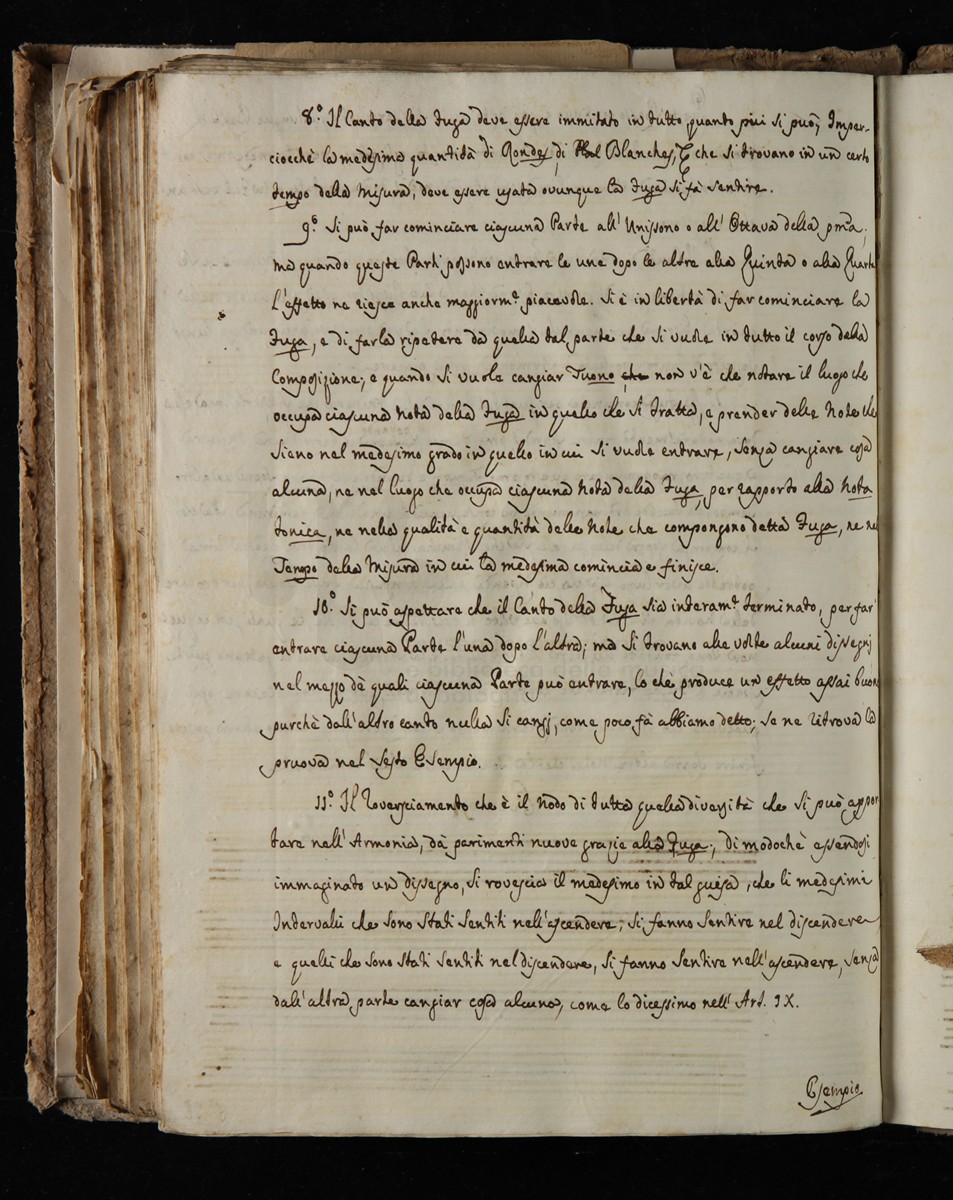 8.° Il Canto della Fuga deve essere immitato in tutto quanto più si può; Imper-
ciocchè la medesima quantità di Rondes, di Blanches, &c che si trovano in un certo
tempo della Misura, deve essere usata ovunque la Fuga si fà sentire.
9.° Si può far cominciare ciascuna Parte all' Unissono o all' Ottava della pma;
ma quando queste Parti possono entrare le une dopo le altre alla Quinta o alla Quarta
l'effetto ne riesce anche maggiorm.e piacevole. Si è in libertà di far cominciare la
Fuga, e di farla ripetere da quella tal parte che si vuole in tutto il corso della
Composizione; e quando si vuole cangiar Tuono che non v'è che notare il luogo che
occupa ciascuna nota della Fuga in quello che si tratta, e prender delle Note che
sieno nel medesimo grado in quello in cui si vuole entrare, senza cangiare cosa
alcuna, ne nel luogo che occupa ciascuna Nota della Fuga, per rapporto alla Nota
tonica, ne nella qualità e quantità delle Note che compongono detta Fuga, ne nel
Tempo della Misura in cui la medesima comincia e finisce.
10.° Si può aspettare che il Canto della Fuga sia interam.e terminato, per far
entrare ciascuna Parte l'una dopo l'altra; ma si trovano alle volte alcuni dissegnj
nel mezzo dè quali ciascuna Parte può entrare, lo che produce un effetto assai buono
purchè dall'altro canto nulla si cangj, come poco fà abbiamo detto; se ne ritrova la
pruova nel Sesto Esempio.
11.° Il Rovesciamento che è il Nodo di tutta quella diversità che si può appor
tare nell' Armonia, dà parimenti nuove grazie alla Fuga; di modochè essendosi
immaginato un dissegno, si rovescia il medesimo in tal guisa, che li medesimi
Intervalli che sono stati sentiti nell'ascendere; si fanno sentire nel discendere
e quelli che sono stati sentiti nel discendere, si fanno sentire nell'ascendere, senza
dall'altra parte cangiar cosa alcuna, come lo dicessimo nell' Art. IX.
Esempio